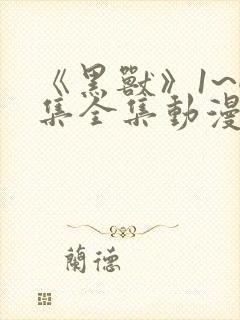 《黑獸》1~
集全集動漫
蘭德